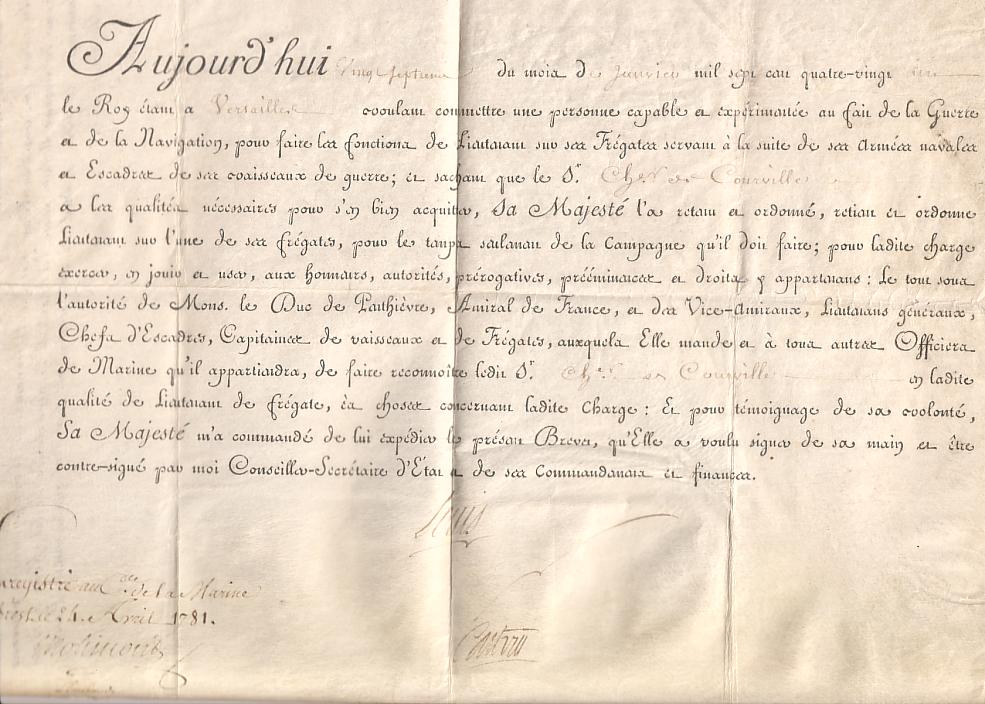 Aujourd'hui Vingt septieme du mois de Janvier mil sept cent quatre-vingt un
le Roy étant a Versailles voulant commettre une personne capable et expérimentée au fait de la Guerre
et de la Navigation, pour faire les fonctions de Lieutenant sur ses Frégates servant à la suite de ses Armées navales
et Escadres de ses vaisseaux de guerre; et sachant que le S.r Ch.er de Courville
a les qualités nécessaires pour s'en bien acquitter, Sa Majesté l'a retenu et ordonné, retient et ordonne
Lieutenant sur l'une de ses frégates, pour le temps seulement de la Campagne qu'il doit faire; pour ladite charge
exercer, en jouir et user, aux honneurs, autorités, prérogatives, prééminences et droits y appartenans: Le tout sous
l'autorité de Mons. le Duc de Penthièvre, Amiral de France, et des Vice-Amiraux, Lieutenans généraux,
Chefs d'Escadres, Capitaines de vaisseaux et de Frégates, auxquels Elle mande et à tous autres Officiers
de Marine qu'il appartiendra, de faire reconnoître ledit S.r Ch.er de Courville en ladite
qualité de Lieutenant de frégate, ès choses concernant ladite Charge: Et pour témoignage de sa volonté,
Sa Majesté m'a commandé de lui expédier le présent Brevet, qu'Elle a voulu signer de sa main et être
contre-signé par moi Conseiller-Secrétaire d'État et de ses Commandemens et finances.
Louis
nregistré au de la Marine
Brest le 24 Avril 1781.
Castries